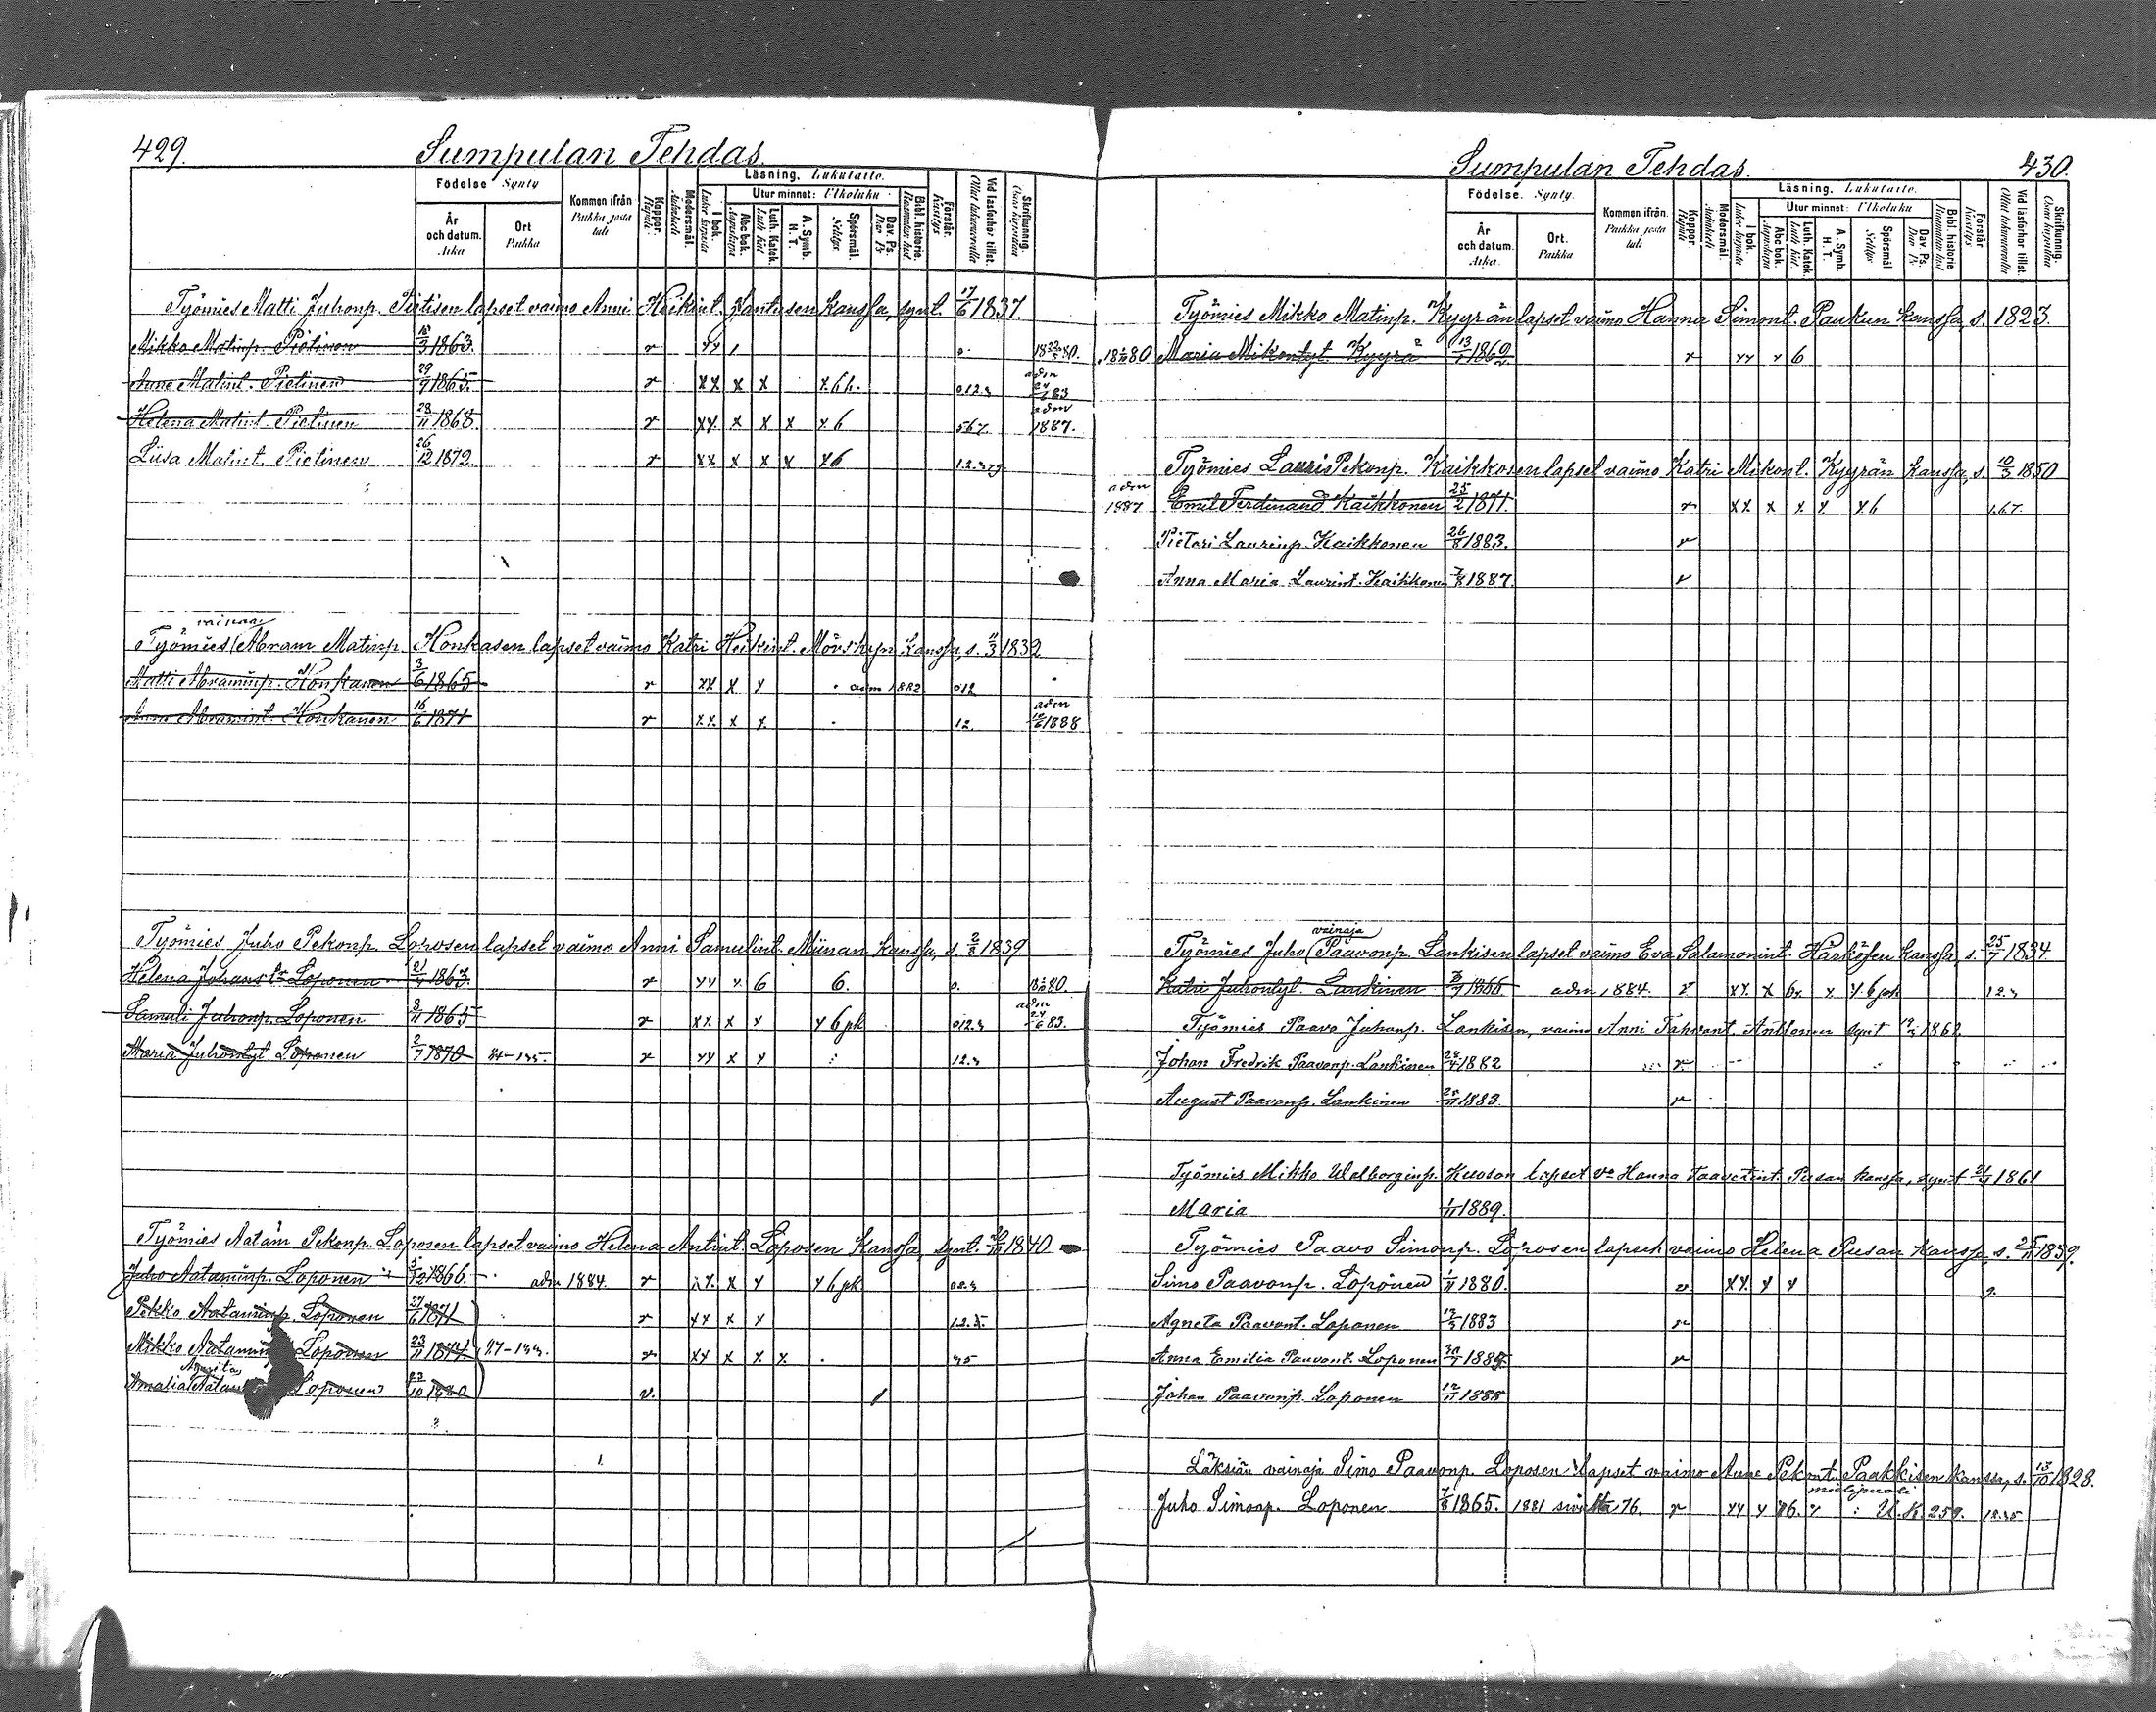 429. Sumpulan Tehdas.
Födelse Synty
Läsning. Lukutaito.
Utur minnet: Ulkoluku
År och datum. Aika
Ort Paikka
Kommen ifrån Paikka josta tuli
Koppor. Rupuli
Modersmål. Äidinkieli
I bok. Luku kirjasta
Abc bok. Aapiskirja
Luth. Katek. Luth Kat
A. Symb. H. T.
Spörsmål. Selitys
Dav. Ps. Dav Ps
Bibl. historie.
Förstår. Käsitys
Vid läsförhör tillst. Ollut lukuvuorolla
Skrifkunnig. Osaa kirjoittaa
Työmies Matti Juhonp. Pietisen lapset vaimo Anni Heikint. Jantusen kanssa, synt. 17/6 1837.
Mikko Matinp. Pietinen 1863. r xx 80.
Anne Matint. Pietinen 29/9 1865. r xx x x x 6 h. 012.3 adm 83
Helena Matint. Pietinen 28/11 1868. r xx x x x x 6 567. adm 1887.
Liisa Matint. Pietinen 26/12 1872. r xx x x x x 6
Työmies Abram Matinp. Honkasen lapset vaimo Katri Heikint. Mörskyn kanssa, s. 11/3 1832
Matti Abraminp. Honkanen 3/6 1865 r xx x x adm 1882 012
Anna Abramint. Honkanen 16/6 1871 r xx x x 12. adm 1888
Työmies Juho Pekonp. Loposen lapset vaimo Anni Samulint. Miinan kanssa, s. 2/8 1839.
Helena Juhont. Loponen 1863. r xx x 6 6. 0. 80.
Samuli Juhonp. Loponen 8/11 1865 r xx x x x 6 pk 012.3 adm 83.
Maria Juhontyt. Loponen 2/7 1870 84-135 r xx x x 12.3
Työmies Aatam Pekonp. Loposen lapset vaimo Helena Antint. Loposen kanssa, synt. 1840
Juho Aataminp. Loponen 5/12 1866. adm 1884. r xx x x x 6 pk
Pekko Aataminp. Loponen 1871 r xx x x
Mikko Loponen 23/11 1874. r xx x x x
Amalia Loponen 23/10 1880 r.
Sumpulan Tehdas. 430.
Födelse. Synty.
Läsning. Lukutaito.
Utur minnet: Ulkoluku
År och datum. Aika
Ort. Paikka
Kommen ifrån. Paikka josta tuli
Koppor Rupuli
Modersmål. Äidinkieli
I bok. Luku kirjasta
Abc bok. Aapiskirja
Luth. Katek. Luth kat.
A. Symb. H. T.
Spörsmål Selitys
Dav. Ps. Dav Ps
Bibl. historie
Förstår Käsitys
Vid läsförhor tillst. Ollut lukuvuorolla
Skrifkunnig. Osaa kirjoittaa
Työmies Mikko Matinp. Kyyrän lapset vaimo Hanna Simont. Paukun kanssa, s. 1823.
80 Maria Mikontyt. Kyyrä 1862 r xx x 6
Työmies Lauri Pekonp. Kaikkosen lapset vaimo Katri Mikont. Kyyrän kanssa, s. 10/3 1850
adm 1887 Emil Ferdinand Kaikkonen 25/2 1871. r xx x x x x 6 1.67.
Pietari Laurinp. Kaikkonen 26/8 1883. r
Anna Maria Laurint. Kaikkonen 7/8 1887. r
vainaja
Työmies Juho Paavonp. Lankisen lapset vaimo Eva Salamonint. Härkösen kanssa, s. 25/7 1834.
Katri Juhontyt. Lankinen 1866. adm 1884. r xx x 6x x x 6 pk 12.3
Työmies Paavo Juhonp. Lankisen, vaimo Anni Tahvant. Anttonen synt 1862
Johan Fredrik Paavonp. Lankinen 24/4 1882 r
August Paavonp. Lankinen 25/11 1883. r
Työmies Mikko Walborginp. Kuosan lapset vo Hanna Taavetint. Pusan kanssa, synt 21/4 1861
Maria 1/11 1889.
Työmies Paavo Simonp. Loposen lapset vaimo Helena Pusan kanssa, s. 25/11 1839.
Simo Paavonp. Loponen 1/11 1880. v xx. x x 2.
Agneta Paavont. Loponen 13/3 1883 r
Anna Emilia Paavont. Loponen r
Johan Paavonp. Loponen 12/11 1888
Läksiän vainaja Simo Paavonp. Loposen lapset vaimo Anne Pekont. Paakkisen kanssa, s. 13/10 1828.
mielipuoli
Juho Simonp. Loponen 7/8 1865. 1881 sivulta 76. r xx x x6. x U. K. 259.